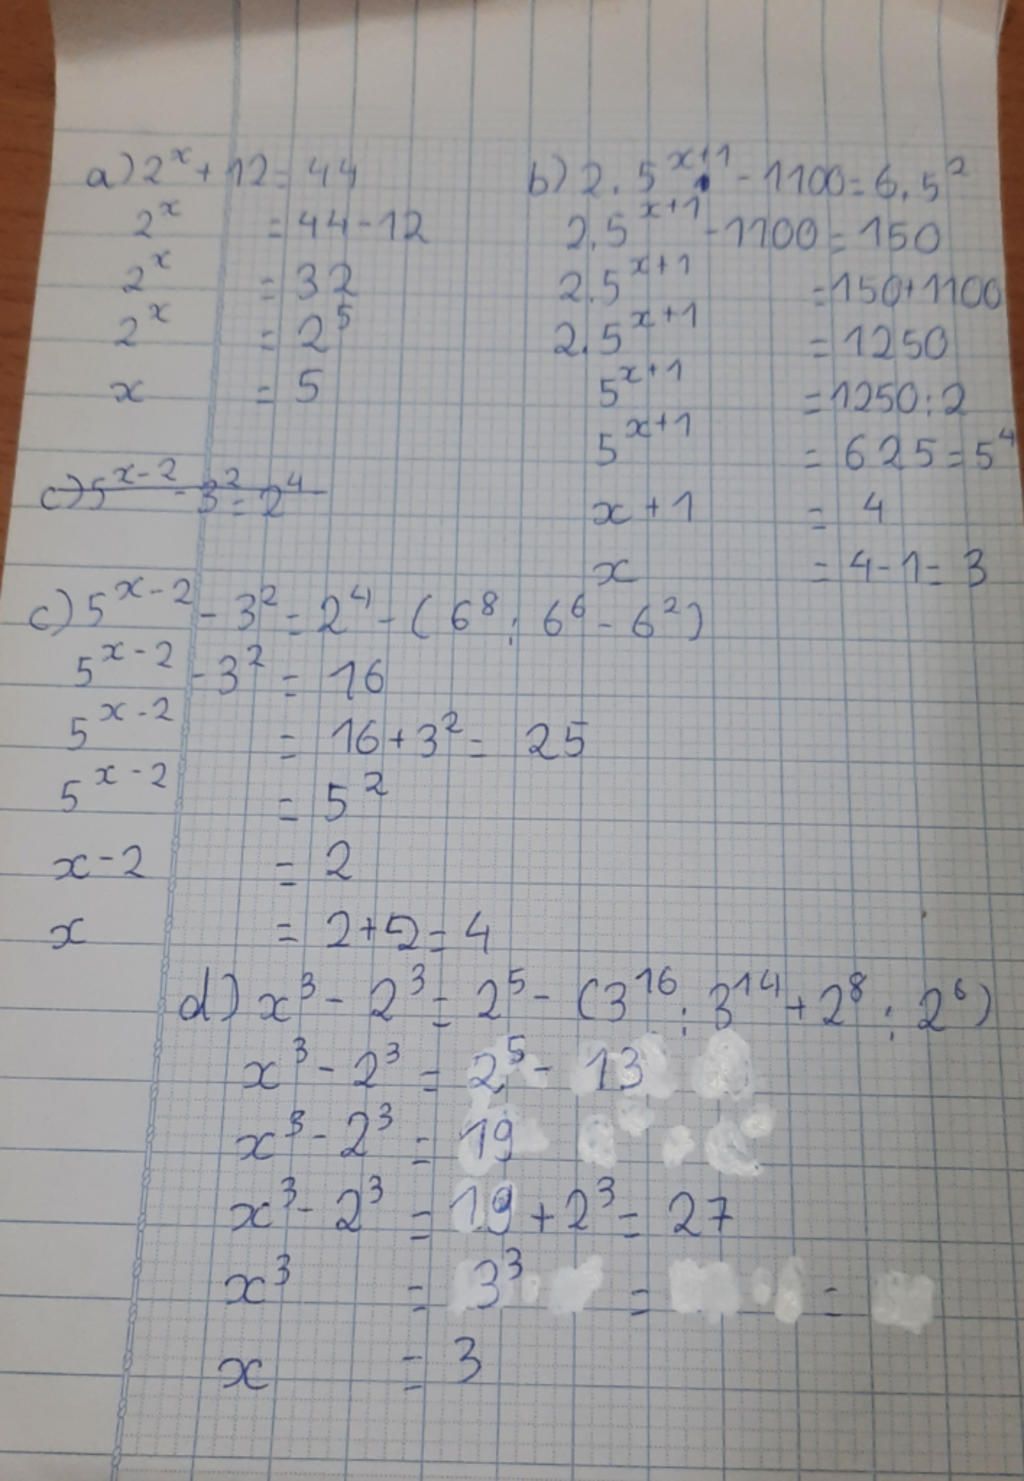 a) 2^x + 12 = 44
2^x = 44 - 12
2^x = 32
2^x = 2^5
x = 5
b) 2.5^{x+1} - 1100 = 6.5^2
2.5^{x+1} - 1100 = 150
2.5^{x+1} = 150 + 1100
2.5^{x+1} = 1250
5^{x+1} = 1250 : 2
5^{x+1} = 625 = 5^4
x + 1 = 4
x = 4 - 1 = 3
c) 5^{x-2} - 3^2 = 2^4
c) 5^{x-2} - 3^2 = 2^4 - (6^8 : 6^6 - 6^2)
5^{x-2} - 3^2 = 16
5^{x-2} = 16 + 3^2 = 25
5^{x-2} = 5^2
x - 2 = 2
x = 2 + 2 = 4
d) x^3 - 2^3 = 2^5 - (3^{16} : 3^{14} + 2^8 : 2^6)
x^3 - 2^3 = 2^5 - 13
x^3 - 2^3 = 19
x^3 - 2^3 = 19 + 2^3 = 27
x^3 = 3^3 = =
x = 3